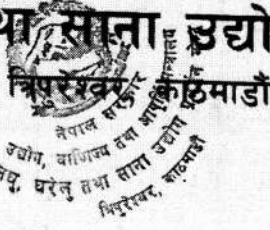 था साना उद्यो
त्रिपुरेश्वर, काठमाडौं
नेपाल सरकार
उद्योग, वाणिज्य तथा आपूर्ति मन्त्रालय
घरेलु तथा साना उद्योग
त्रिपुरेश्वर, काठमाडौं